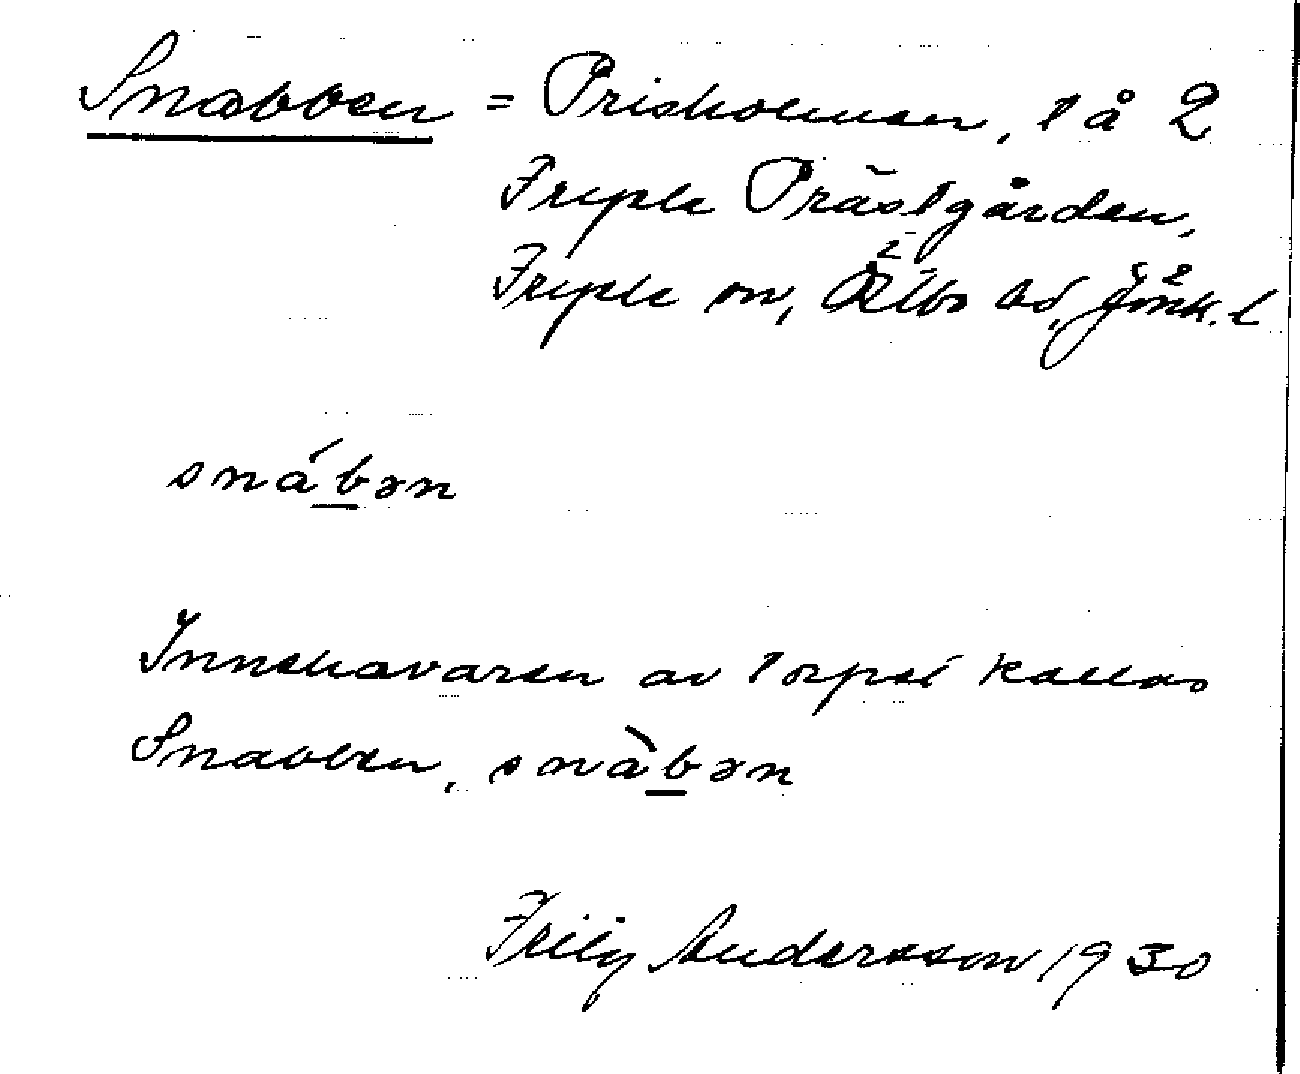 Snabben = Prisholmen, t å 2
Fryele Prästgården,
Fryele sn, Östbo hd, Jönk. l
snábən
Innehavaren av torpet kallas
Snabben, snàbən
Frily Andersson 1930